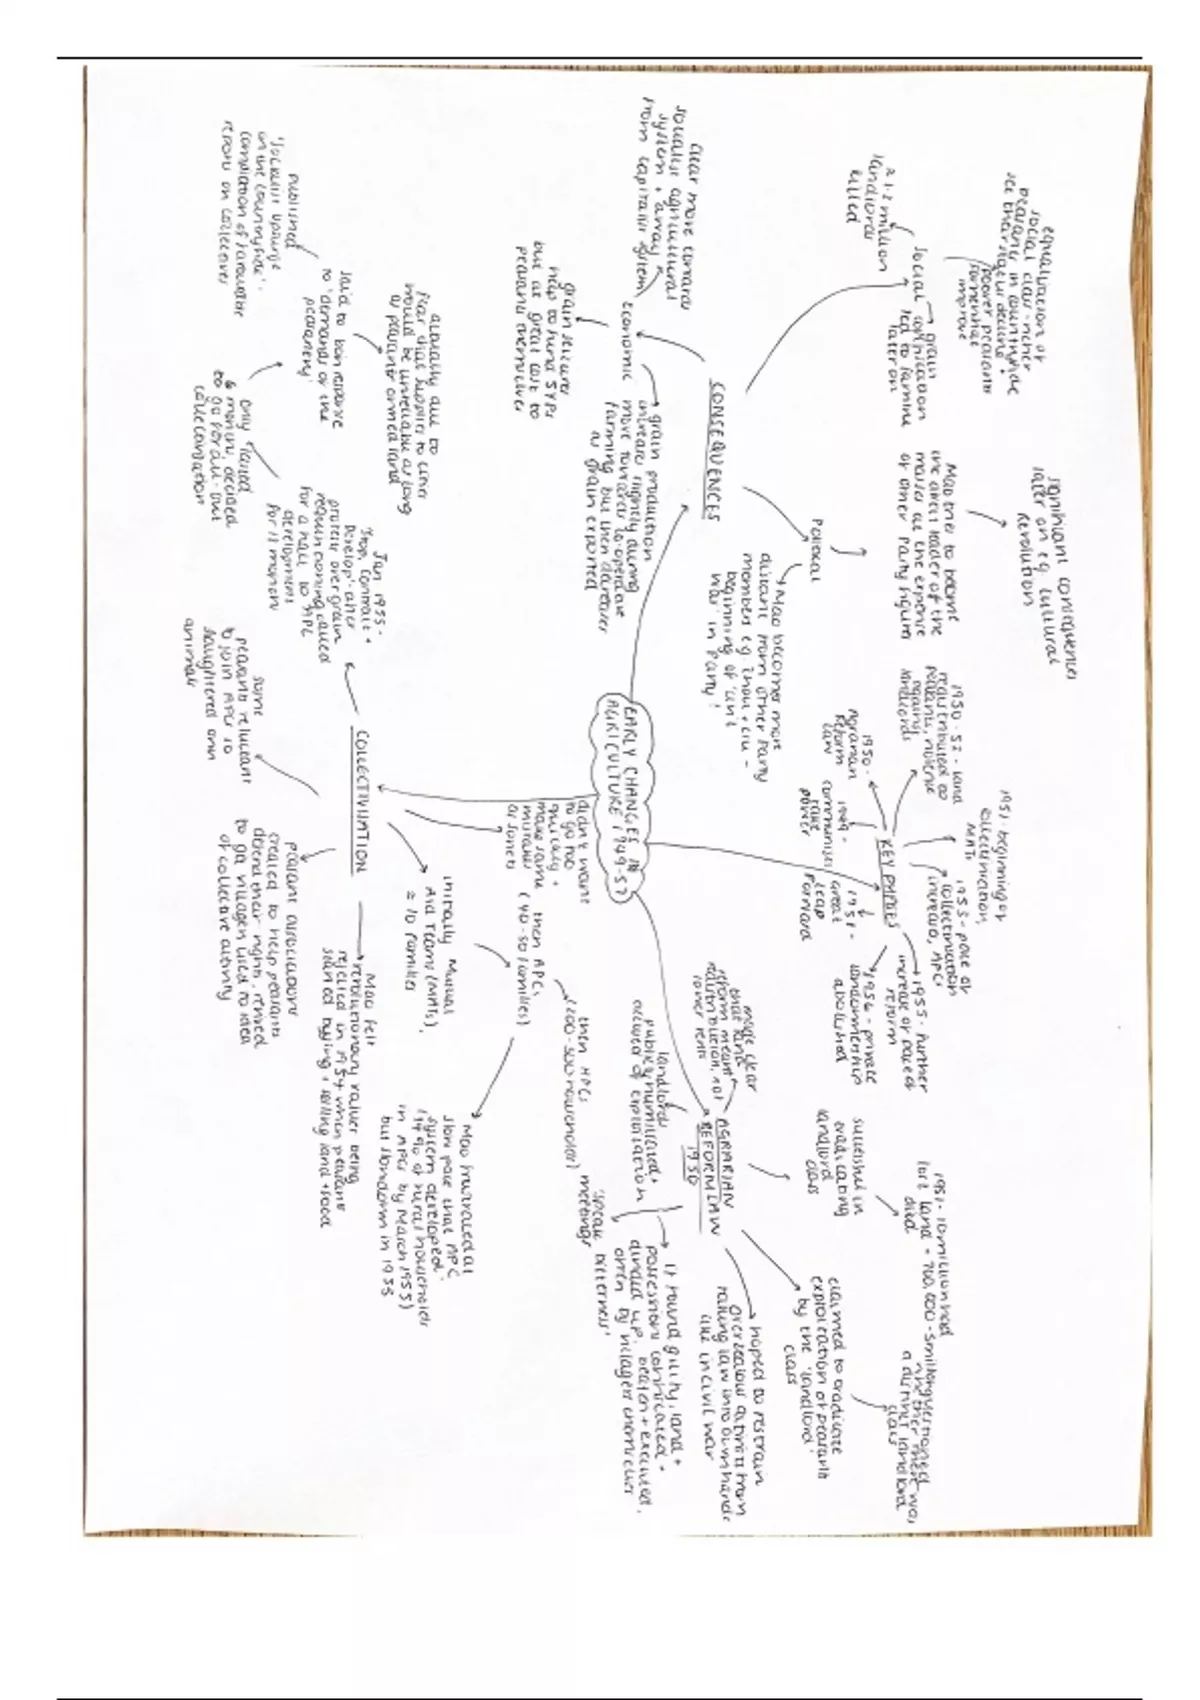 EARLY CHANGES IN
AGRICULTURE 1949-57
KEY PHASES
1949 -
communists
take
power
1950 -
Agrarian
Reform
Law
1950-52 - land
redistributed to
peasants, violence
against
landlords
1951 - beginning of
collectivisation,
MATs
1953 - pace of
collectivisation
increases, APCs
1955 - further
increase of pace of
reform
1956 - private
landownership
abolished
1958 -
Great
Leap
Forward
AGRARIAN
REFORM LAW
1950
made clear
that land
reform meant
redistribution, not
lower rents
landlords
publicly humiliated +
accused of exploitation
'speak bitterness'
meetings
if found guilty, land +
possessions confiscated +
divided up. beaten + executed,
often by villagers themselves
hoped to restrain
overzealous activists from
taking law into own hands
like in civil war
claimed to eradicate
exploitation of peasants
by the 'landlord'
class
successful in
eradicating
landlord
class
1951 - 10 million had
lost land +
died
questioned
a distinct landlord
class
COLLECTIVISATION
didn't want
to go too
quickly +
make same
mistakes
as Soviets
initially Mutual
Aid Teams (MATs),
= 10 families
then APCs
(40-50 families)
then HPCs
(200-300 households)
Mao frustrated at
slow pace that APC
system developed.
(14% of rural households
in APCs by March 1955)
but slowdown in 1953
Mao felt
revolutionary values being
rejected in 1954 when peasants
started buying + selling land + food
peasant associations
created to help peasants
defend their rights, tended
to get villagers used to idea
of collective activity
some
peasants reluctant
to join APCs so
slaughtered own
animals
Jan 1955 -
'Stop, Contract +
Develop' after
protests over grain
requisitioning called
for a halt to APC
development
for 18 months
only lasted
months, decided
to go for all-out
collectivisation
said to be in response
to 'demands of the
peasantry'
actually due to
fear that supplies to cities
would be unreliable as long
as peasants owned land
published
'Socialist Upsurge
in the Countryside' -
compilation of favourable
reports on collectives
CONSEQUENCES
Economic
clear move towards
socialist agricultural
system + away
from capitalist system
grain seizures
help to fund 5YPs
but at great cost to
peasants themselves
grain production
increases slightly during
move towards co-operative
farming but then decreases
as grain exported
Social
≈ 1-2 million
landlords
killed
equalization of
social class - richer
peasants in countryside
see their status decline +
poorer peasants
somewhat
improve
grain
confiscation
led to famine
later on
Political
Mao tries to become
the direct leader of the
masses at the expense
of other Party figures
significant consequences
later on e.g. Cultural
Revolution
Mao becomes more
distant from other Party
members e.g. Zhou + Liu -
beginning of 'civil
war' in Party!